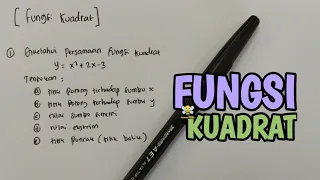 [ Fungsi Kuadrat ]
① Diketahui Persamaan fungsi kuadrat
y = x² + 2x - 3
Tentukan :
ⓐ titik potong terhadap sumbu x
ⓑ titik potong terhadap sumbu y
ⓒ nilai sumbu simetri
ⓓ nilai ekstrim
ⓔ titik puncak (titik balik)
FUNGSI
KUADRAT